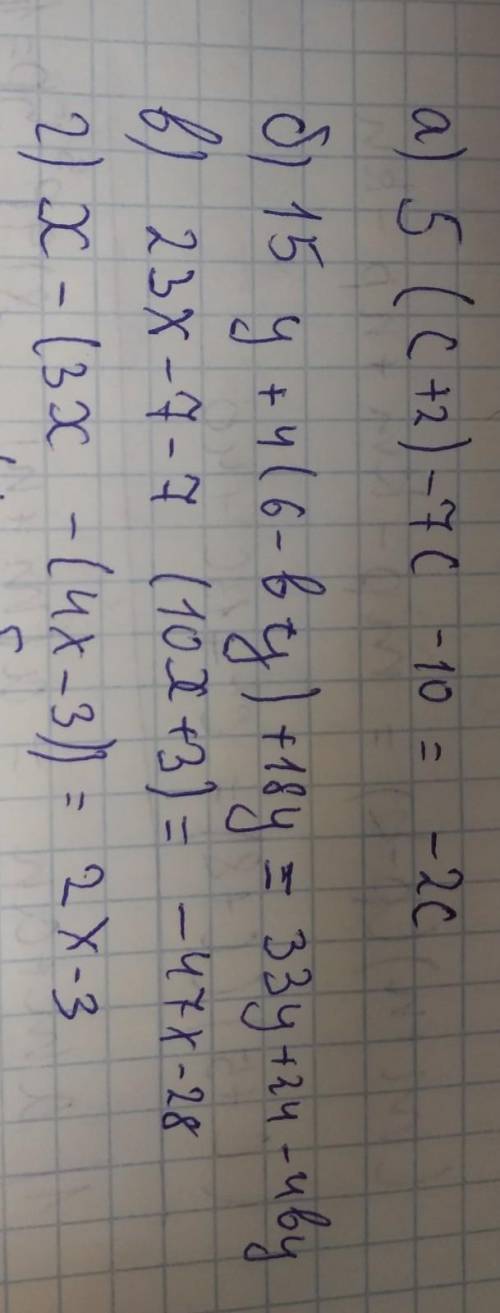 а) 5 (c+2)-7c -10 = -2c
б) 15 y +4(6-вy)+18y = 33y+24-4вy
в) 23x-7-7 (10x+3)= -47x-28
г) x-(3x -(4x-3))= 2x-3